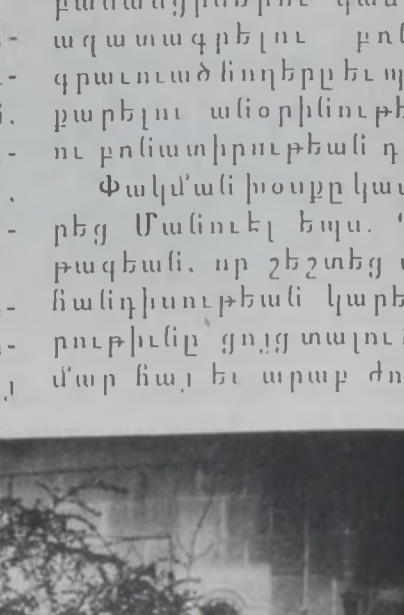 ազատագրելու բոլ
գրաւուած հողերը եւ պ
քարելու անօրինութե
ու բռնատիրութեան դ
Փակման խօսքը կատ
րեց Մանուէլ Եպս.
թազեան. որ շեշտեց
հանդիսութեան կարե
րութիւնը ցոյց տալու
մար հայ եւ արաբ ժո